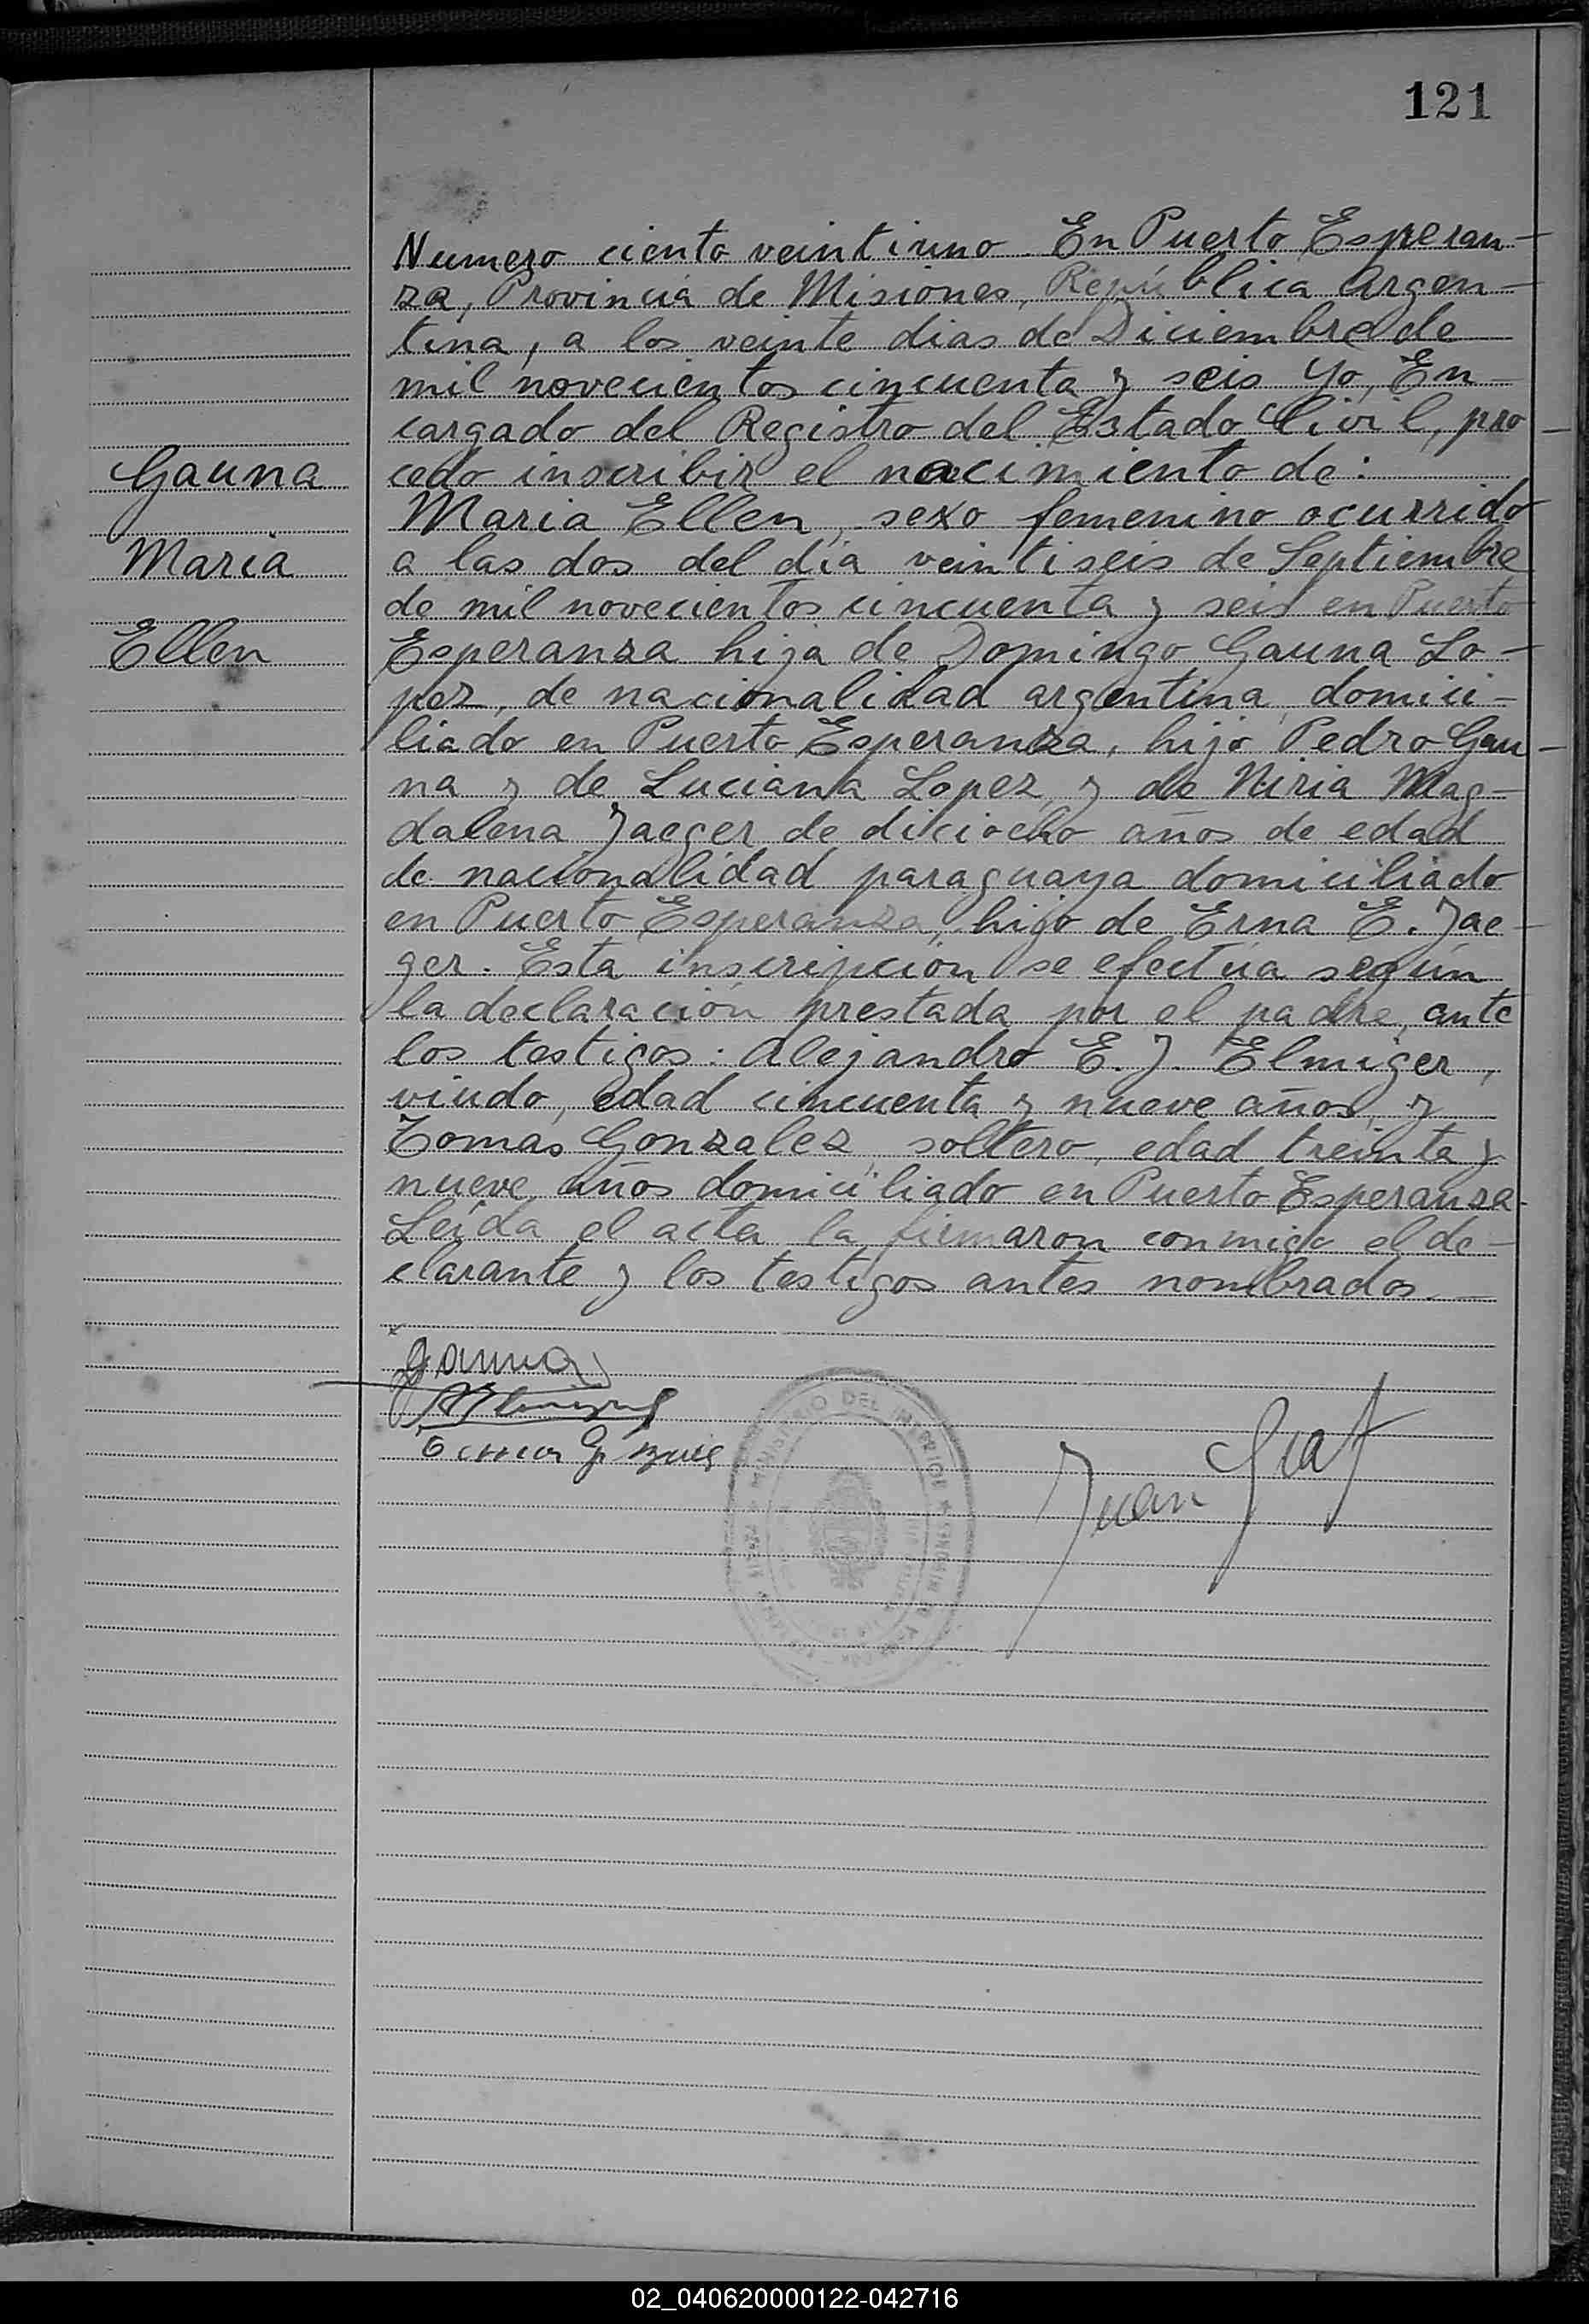 121
Numero ciento veintiuno. En Puerto Esperan-
za, Provincia de Misiones, República Argen-
tina, a los veinte dias de Diciembre de
mil novecientos cincuenta y seis Yo, En-
cargado del Registro del Estado Civil, pro-
Gauna
cedo inscribir el nacimiento de:
Maria Ellen, sexo femenino ocurrido
Maria
a las dos del día veintiseis de Septiembre
de mil novecientos cincuenta y seis en Puerto
Ellen
Esperanza hija de Domingo Gauna Lo-
pez, de nacionalidad argentina, domici-
liado en Puerto Esperanza, hijo Pedro Gau-
na y de Luciana Lopez, y de Niria Mag-
dalena Jaeger de diciocho años de edad
de nacionalidad paraguaya domiciliado
en Puerto Esperanza, hijo de Erna E. Jae-
ger. Esta inscripción se efectúa según
la declaración prestada por el padre, ante
los testigos: Alejandro E. J. Elmiger,
viudo, edad cincuenta y nueve años, y
Tomas Gonzalez, soltero, edad treinta y
nueve años domiciliado en Puerto Esperanza.
Leída el acta la firmaron conmigo el de-
clarante y los testigos antes nombrados.—
Gauna
MINISTERIO DEL INTERIOR
Juan Graf
02_040620000122-042716